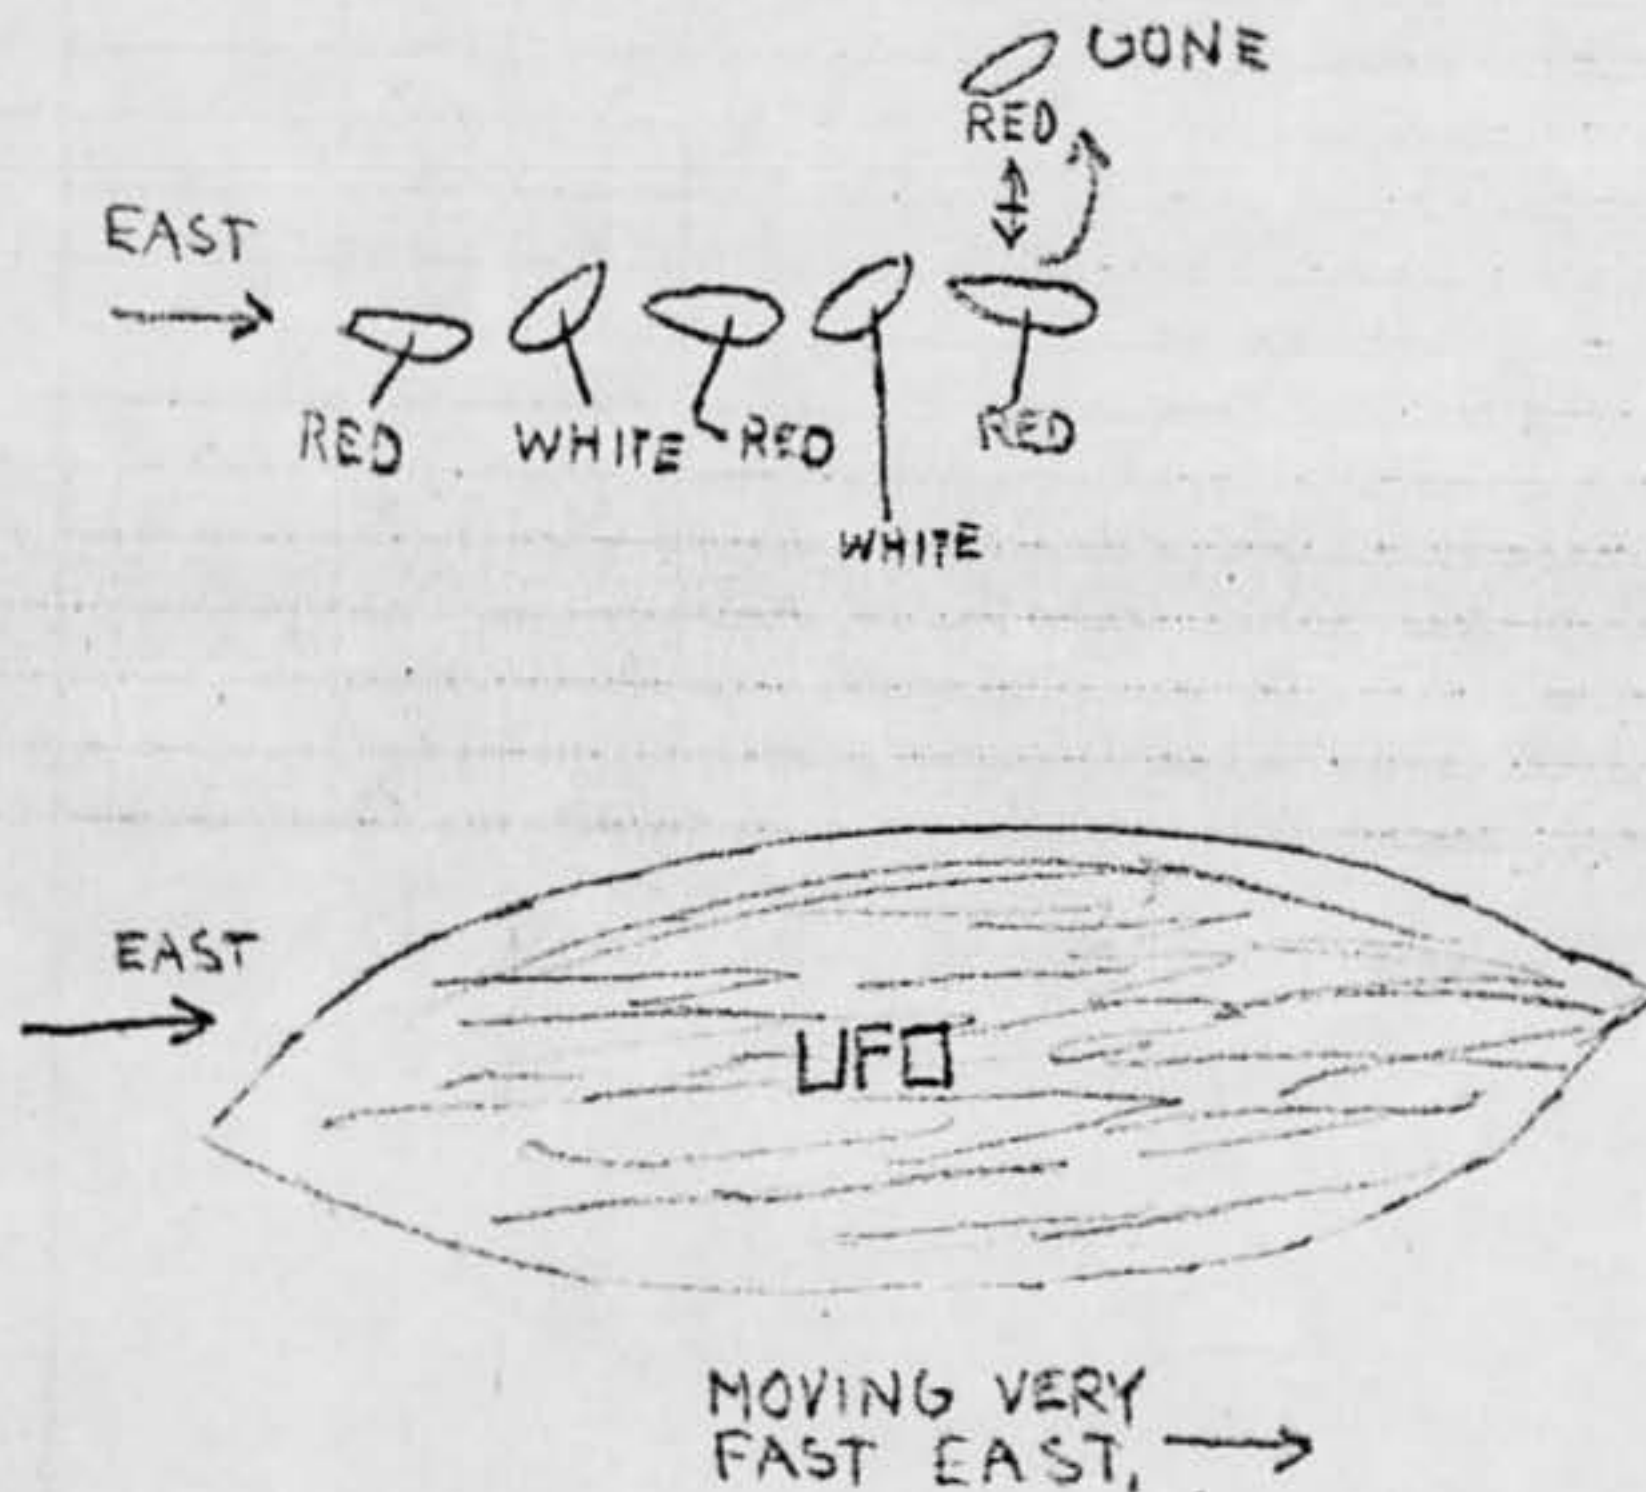 GONE
RED
EAST
RED WHITE RED RED
WHITE
EAST
UFO
MOVING VERY
FAST EAST.